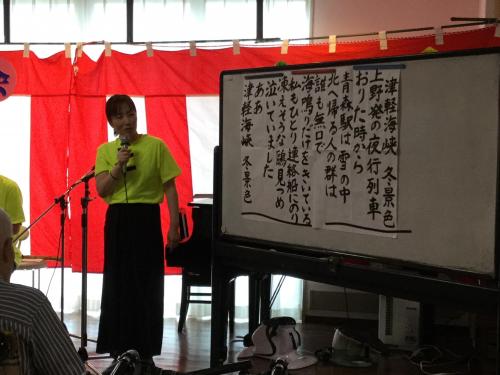 津軽海峡 冬景色
上野発の夜行列車
おりた時から
青森駅は 雪の中
北へ帰る人の群は
誰も無口で
海鳴りだけをきいている
私もひとり 連絡船にのり
凍えそうな 鴎見つめ
泣いていました
ああ
津軽海峡 冬景色